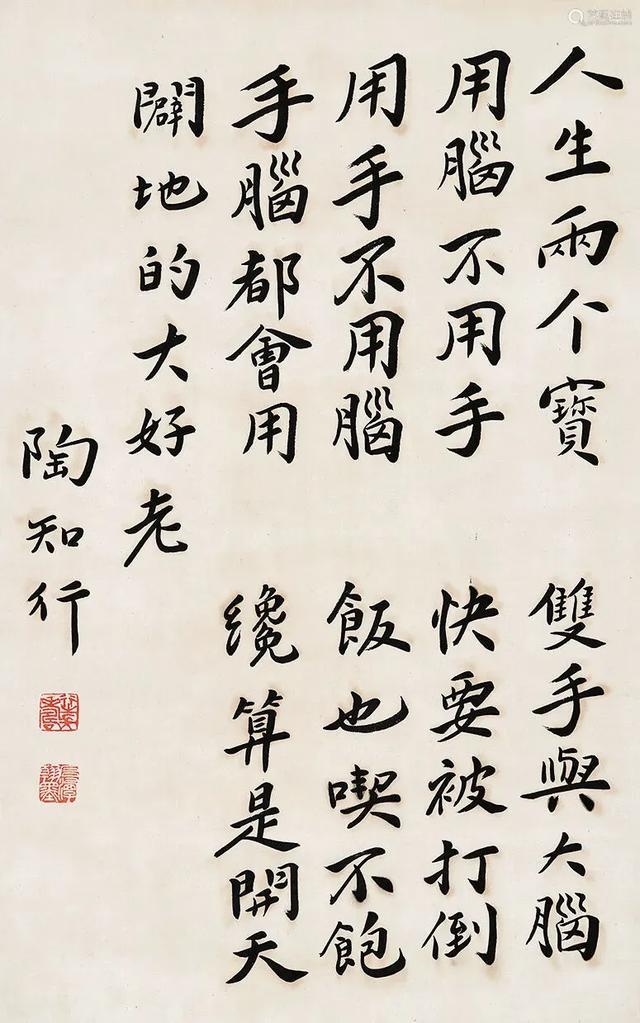 人生兩个寶 雙手與大腦
用腦不用手 快要被打倒
用手不用腦 飯也喫不飽
手腦都會用 纔算是開天
闢地的大好老
陶知行